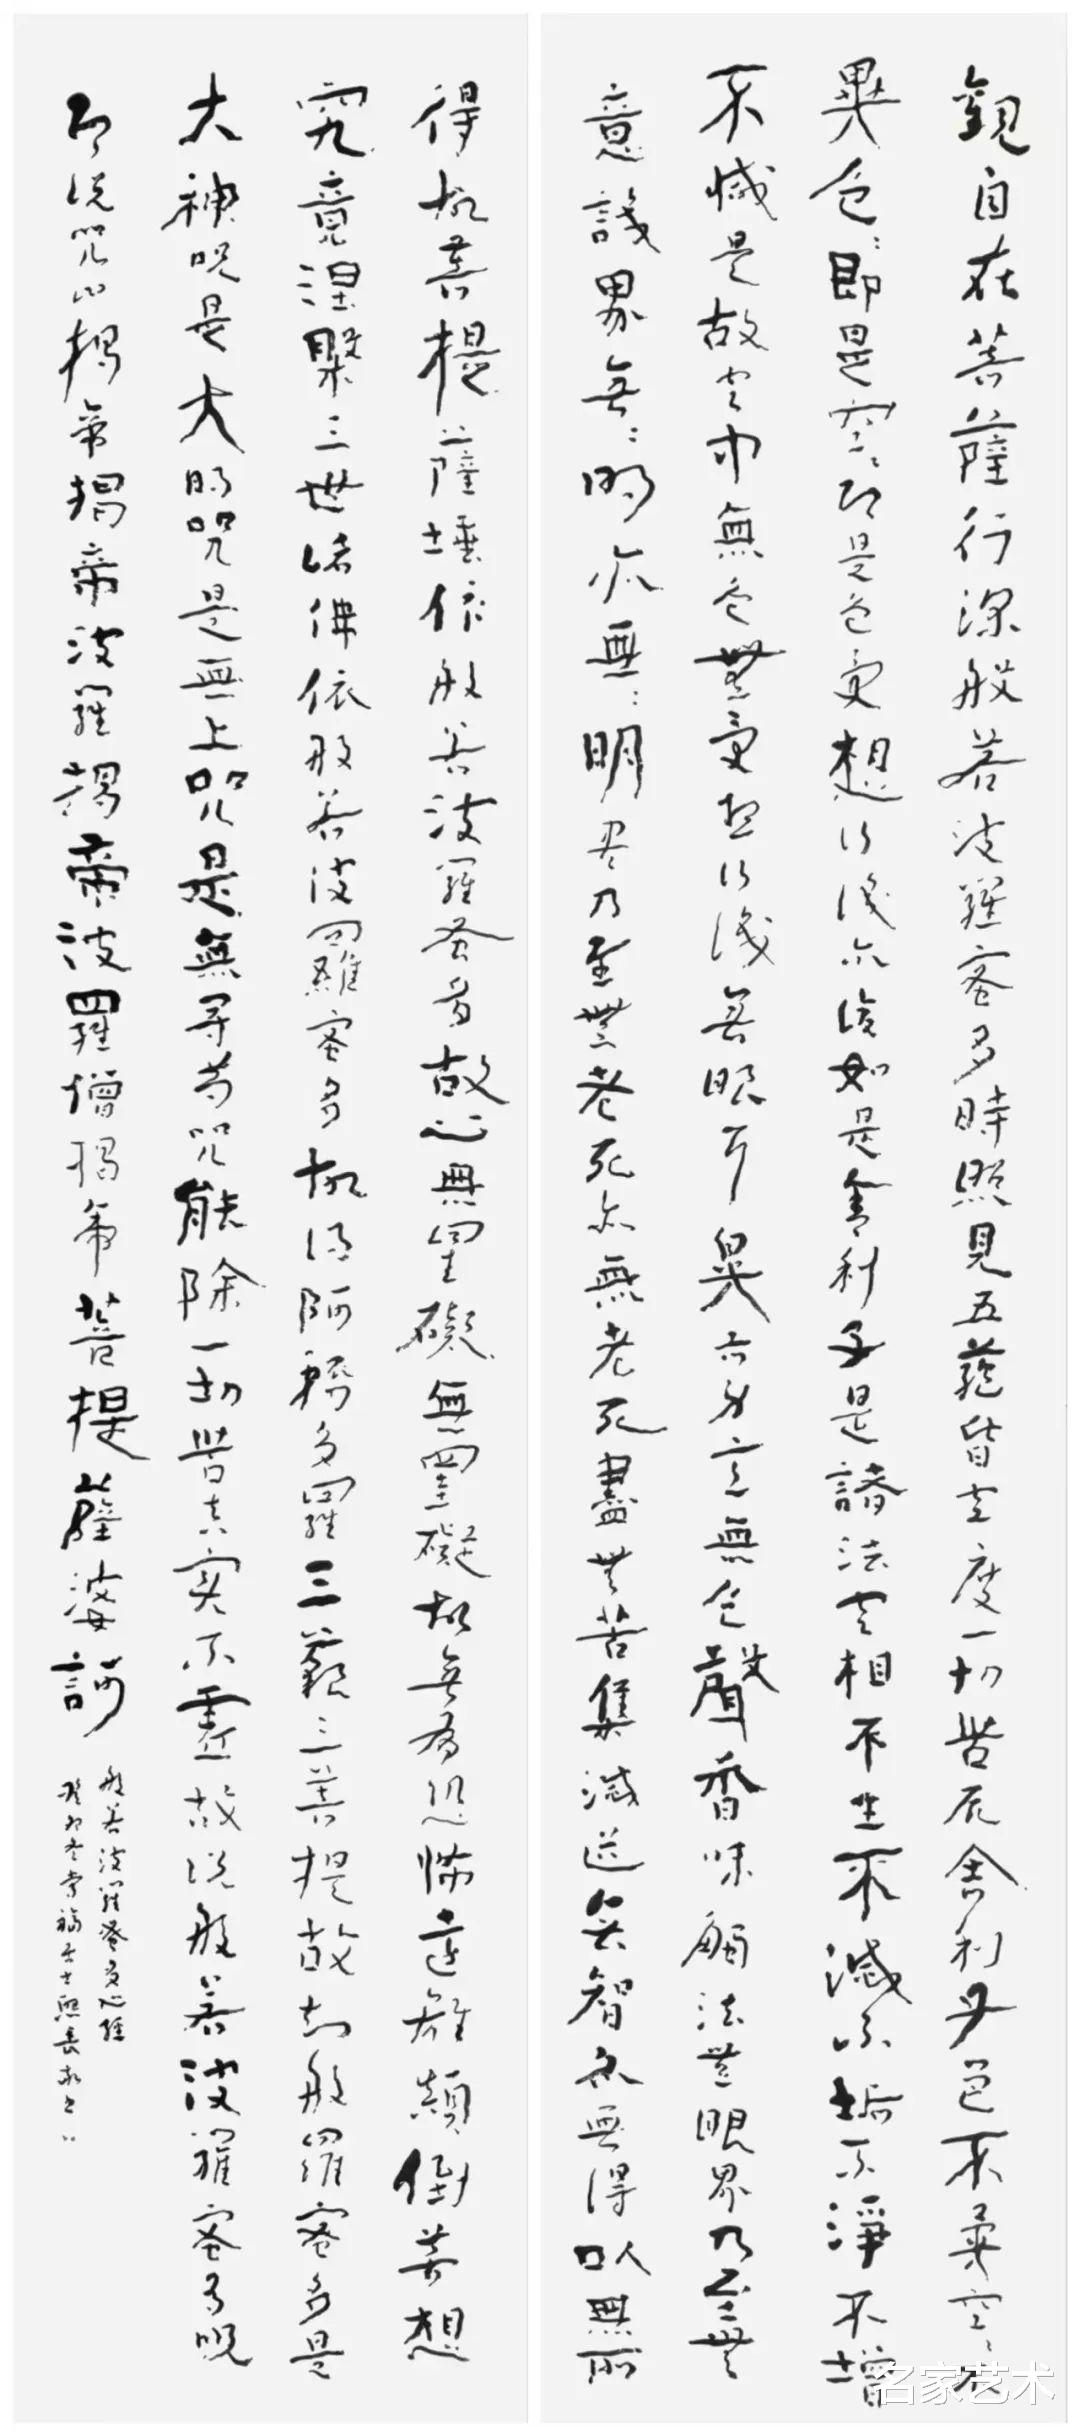 觀自在菩薩行深般若波羅蜜多時照見五蘊皆空度一切苦厄舍利子色不異空:不
異色:即是空:即是色受想行識亦復如是舍利子是諸法空相不生不滅不垢不淨不增
不減是故空中無色無受想行識無眼耳鼻舌身意無色聲香味觸法無眼界乃至無
意識界無:明亦無:明盡乃至無老死亦無老死盡無苦集滅道無智亦無得以無所
得故菩提薩埵依般若波羅蜜多故心無罣礙無罣礙故無有恐怖遠離顛倒夢想
究竟涅槃三世諸佛依般若波羅蜜多故得阿耨多羅三藐三菩提故知般羅蜜多是
大神咒是大明咒是無上咒是無等等咒能除一切苦真實不虛故說般若波羅蜜多咒
即說咒曰揭帝揭帝波羅揭帝波羅僧揭帝菩提薩婆訶
般若波羅蜜多心經
癸卯冬
名家艺术